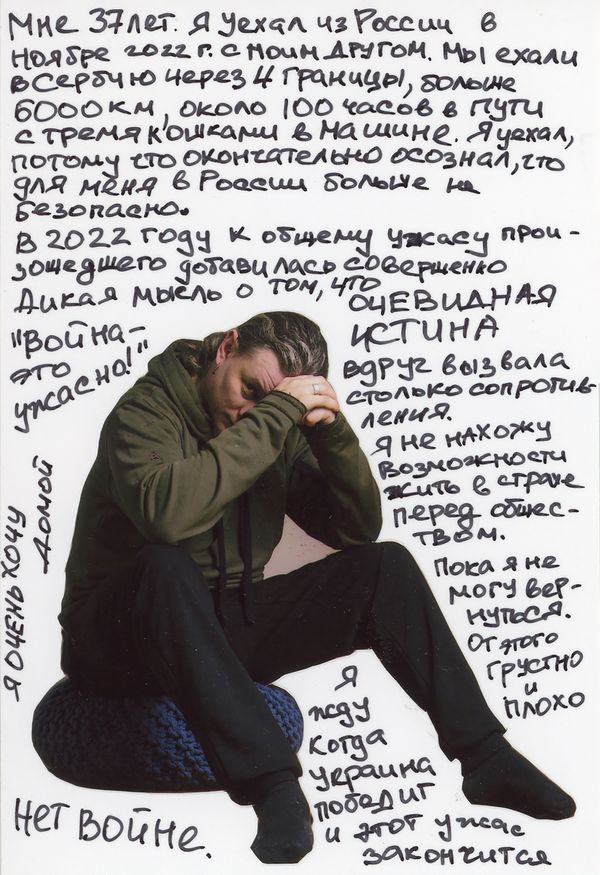 Мне 37 лет. Я уехал из России в
ноябре 2022 г. с моим другом. Мы ехали
в Сербию через 4 границы, больше
6000 км, около 100 часов в пути
с тремя кошками в машине. Я уехал,
потому что окончательно осознал, что
для меня в России больше не
безопасно.
В 2022 году к общему ужасу прои-
зошедшего добавилась совершенно
дикая мысль о том, что
ОЧЕВИДНАЯ
ИСТИНА
"Война-
это
ужасно!"
вдруг вызвала
столько сопротив-
ления.
Я не нахожу
возможности
жить в страхе
перед общес-
твом.
Пока я не
могу вер-
нуться.
От этого
грустно
и
плохо
Я очень хочу
домой
Я
жду
когда
Украина
победит
и этот ужас
закончится
Нет войне.